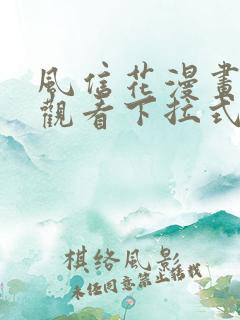 風信花漫畫
觀看下拉式
棋絡風影
未經同意禁止轉載